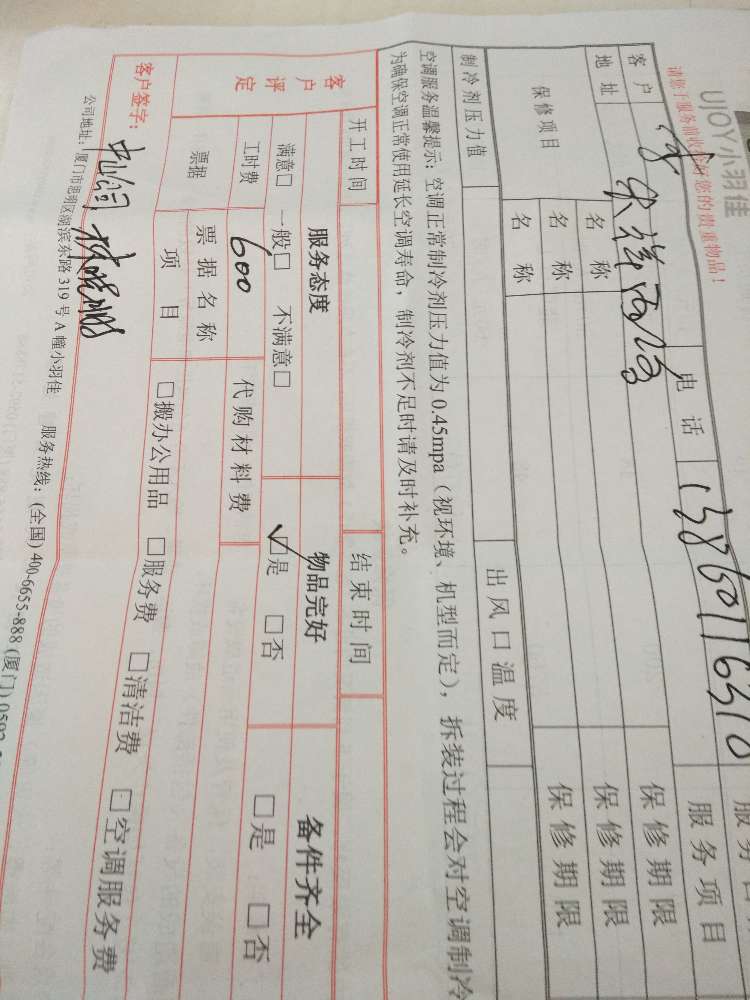 UJOY小羽佳
请您于服务前收好您的贵重物品！
客户 电话 服务项目
地址 保修期限
保修项目 名称 保修期限
名称 保修期限
名称
制冷剂压力值 出风口温度
空调服务温馨提示：空调正常制冷剂压力值为0.45mpa（视环境、机型而定），拆装过程会对空调制冷
为确保空调正常使用延长空调寿命，制冷剂不足时请及时补充。
开工时间 结束时间
客户评定 服务态度 物品完好 备件齐全
满意□ 一般□ 不满意□ ☑是 □否 □是 □否
工时费 600 代购材料费
票据 票据名称
项目 □搬办公用品 □服务费 □清洁费 □空调服务费
客户签字：
公司地址：厦门市思明区湖滨东路319号A幢小羽佳 服务热线：(全国) 400-6655-888 (厦门) 0592